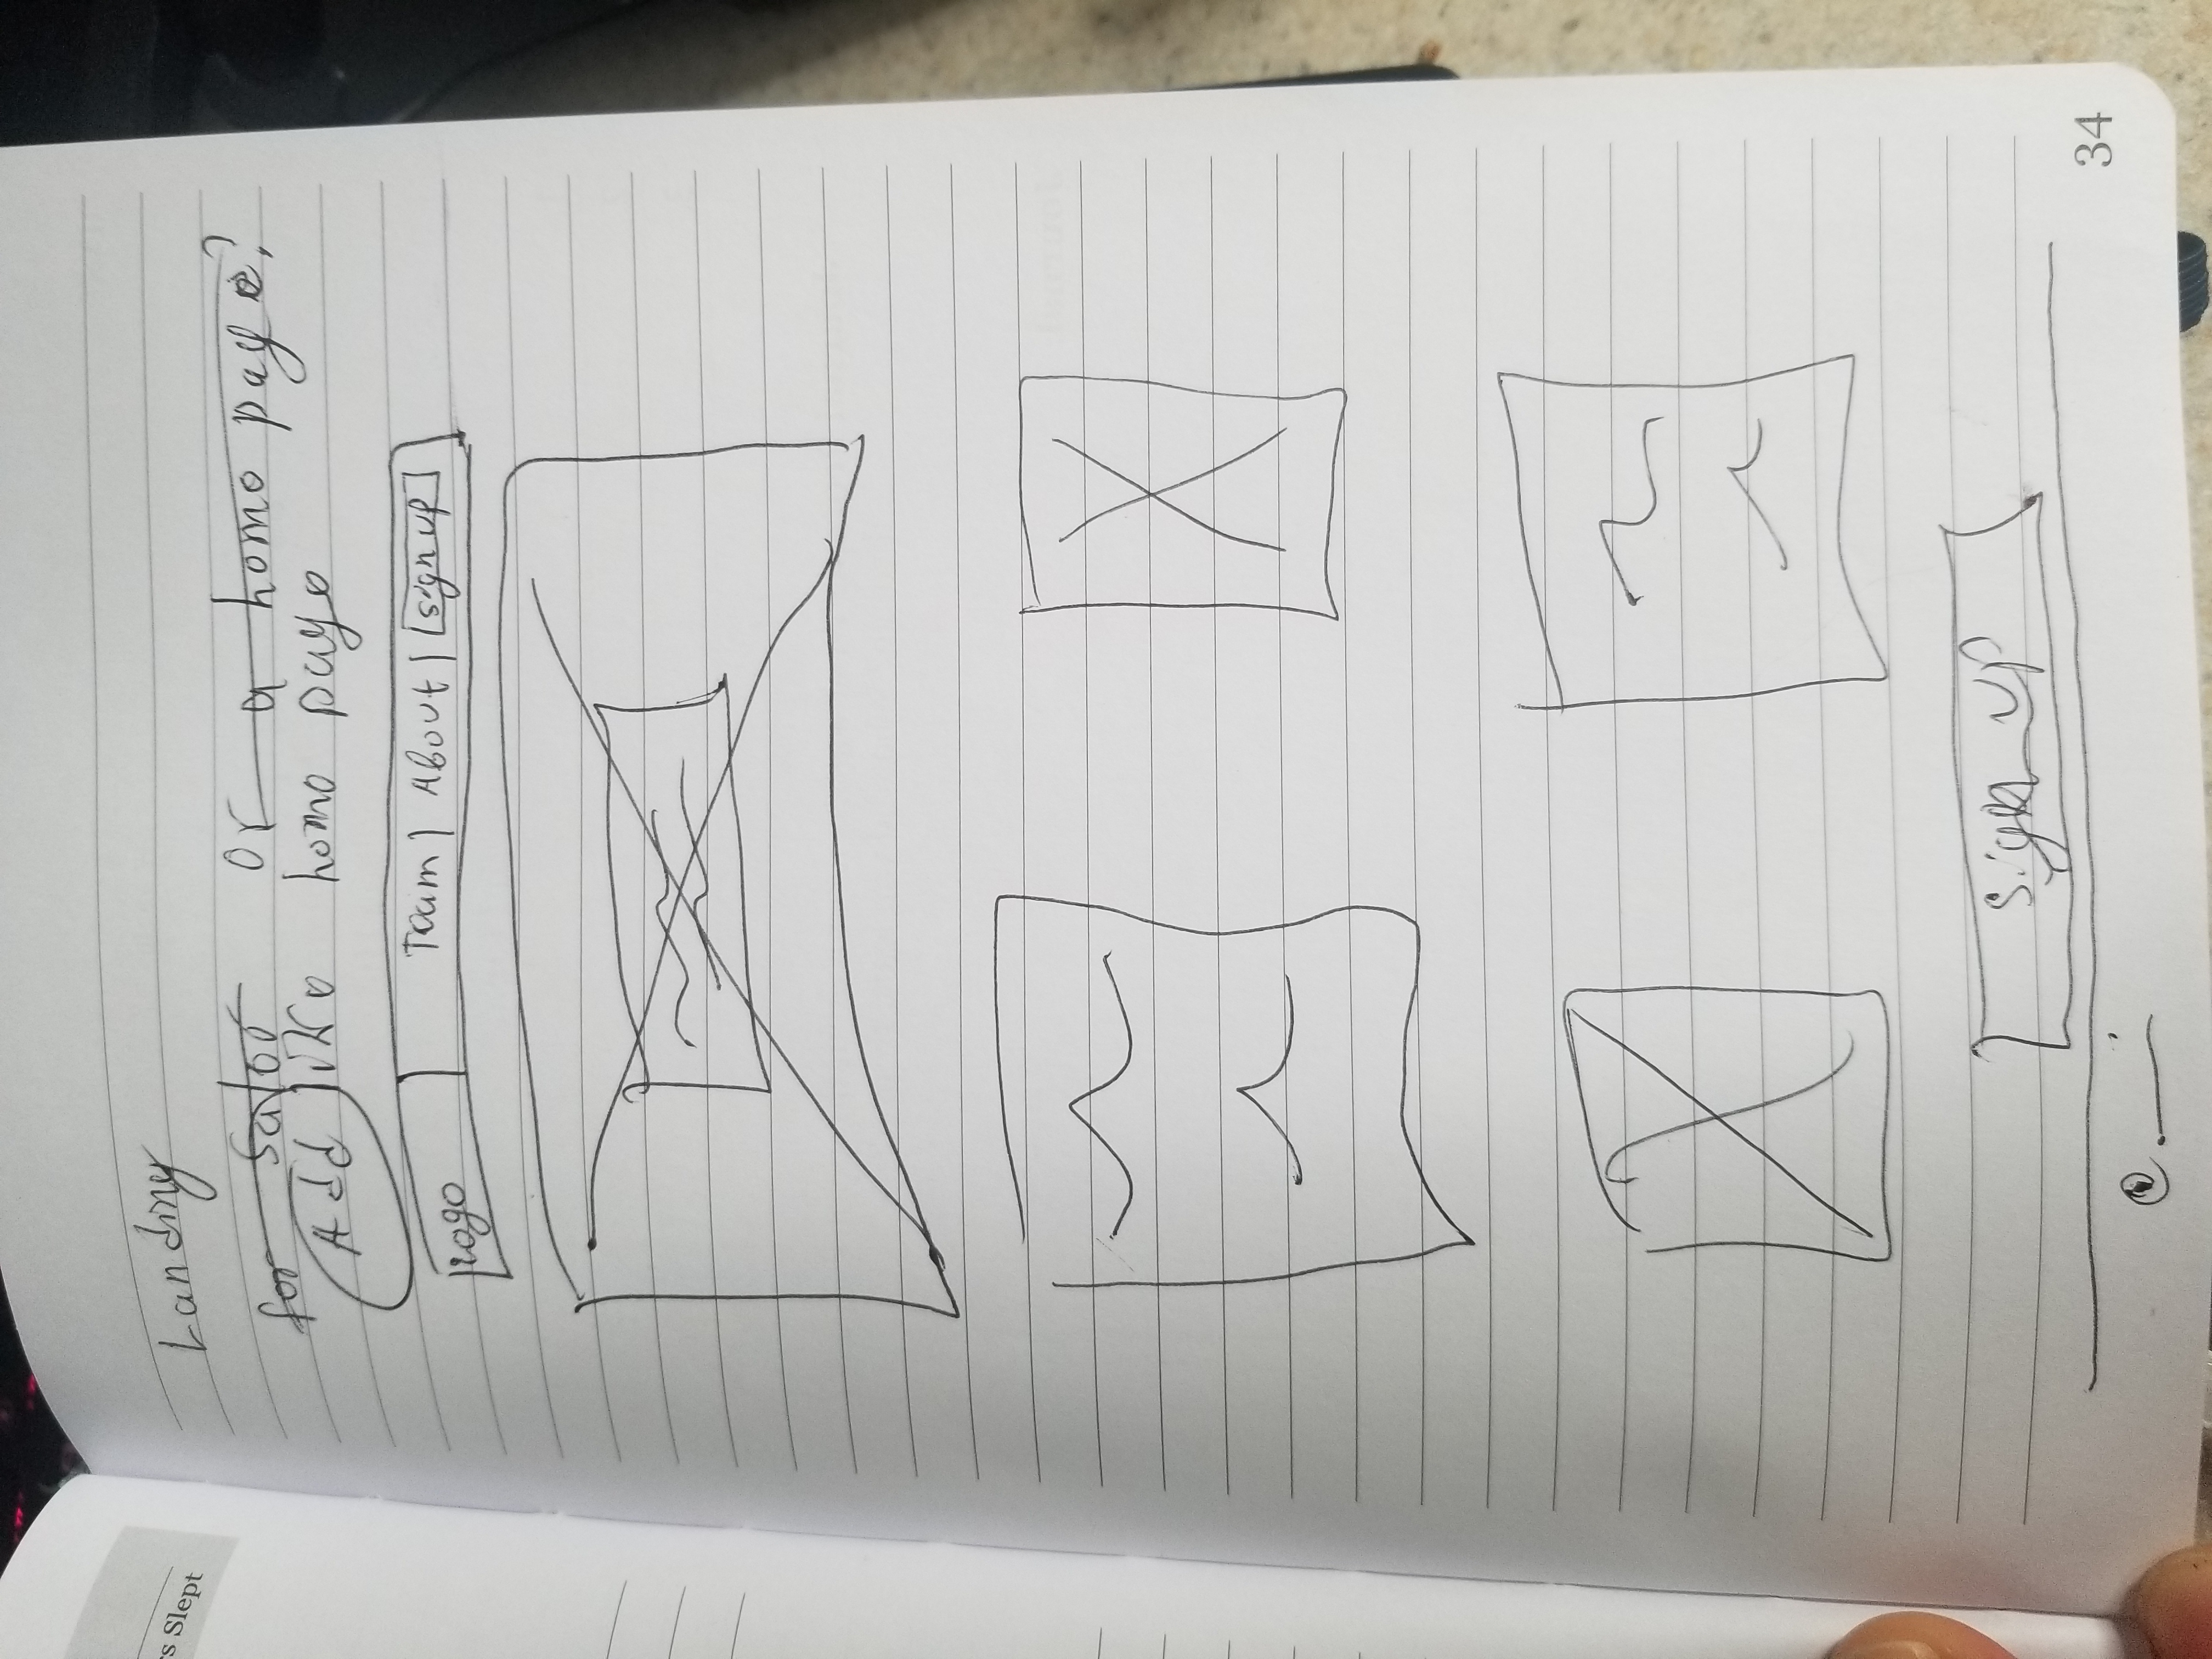 s Slept
Landing
or a homo page?
Add homo page
Logo Team | About | sign up
sign up
34